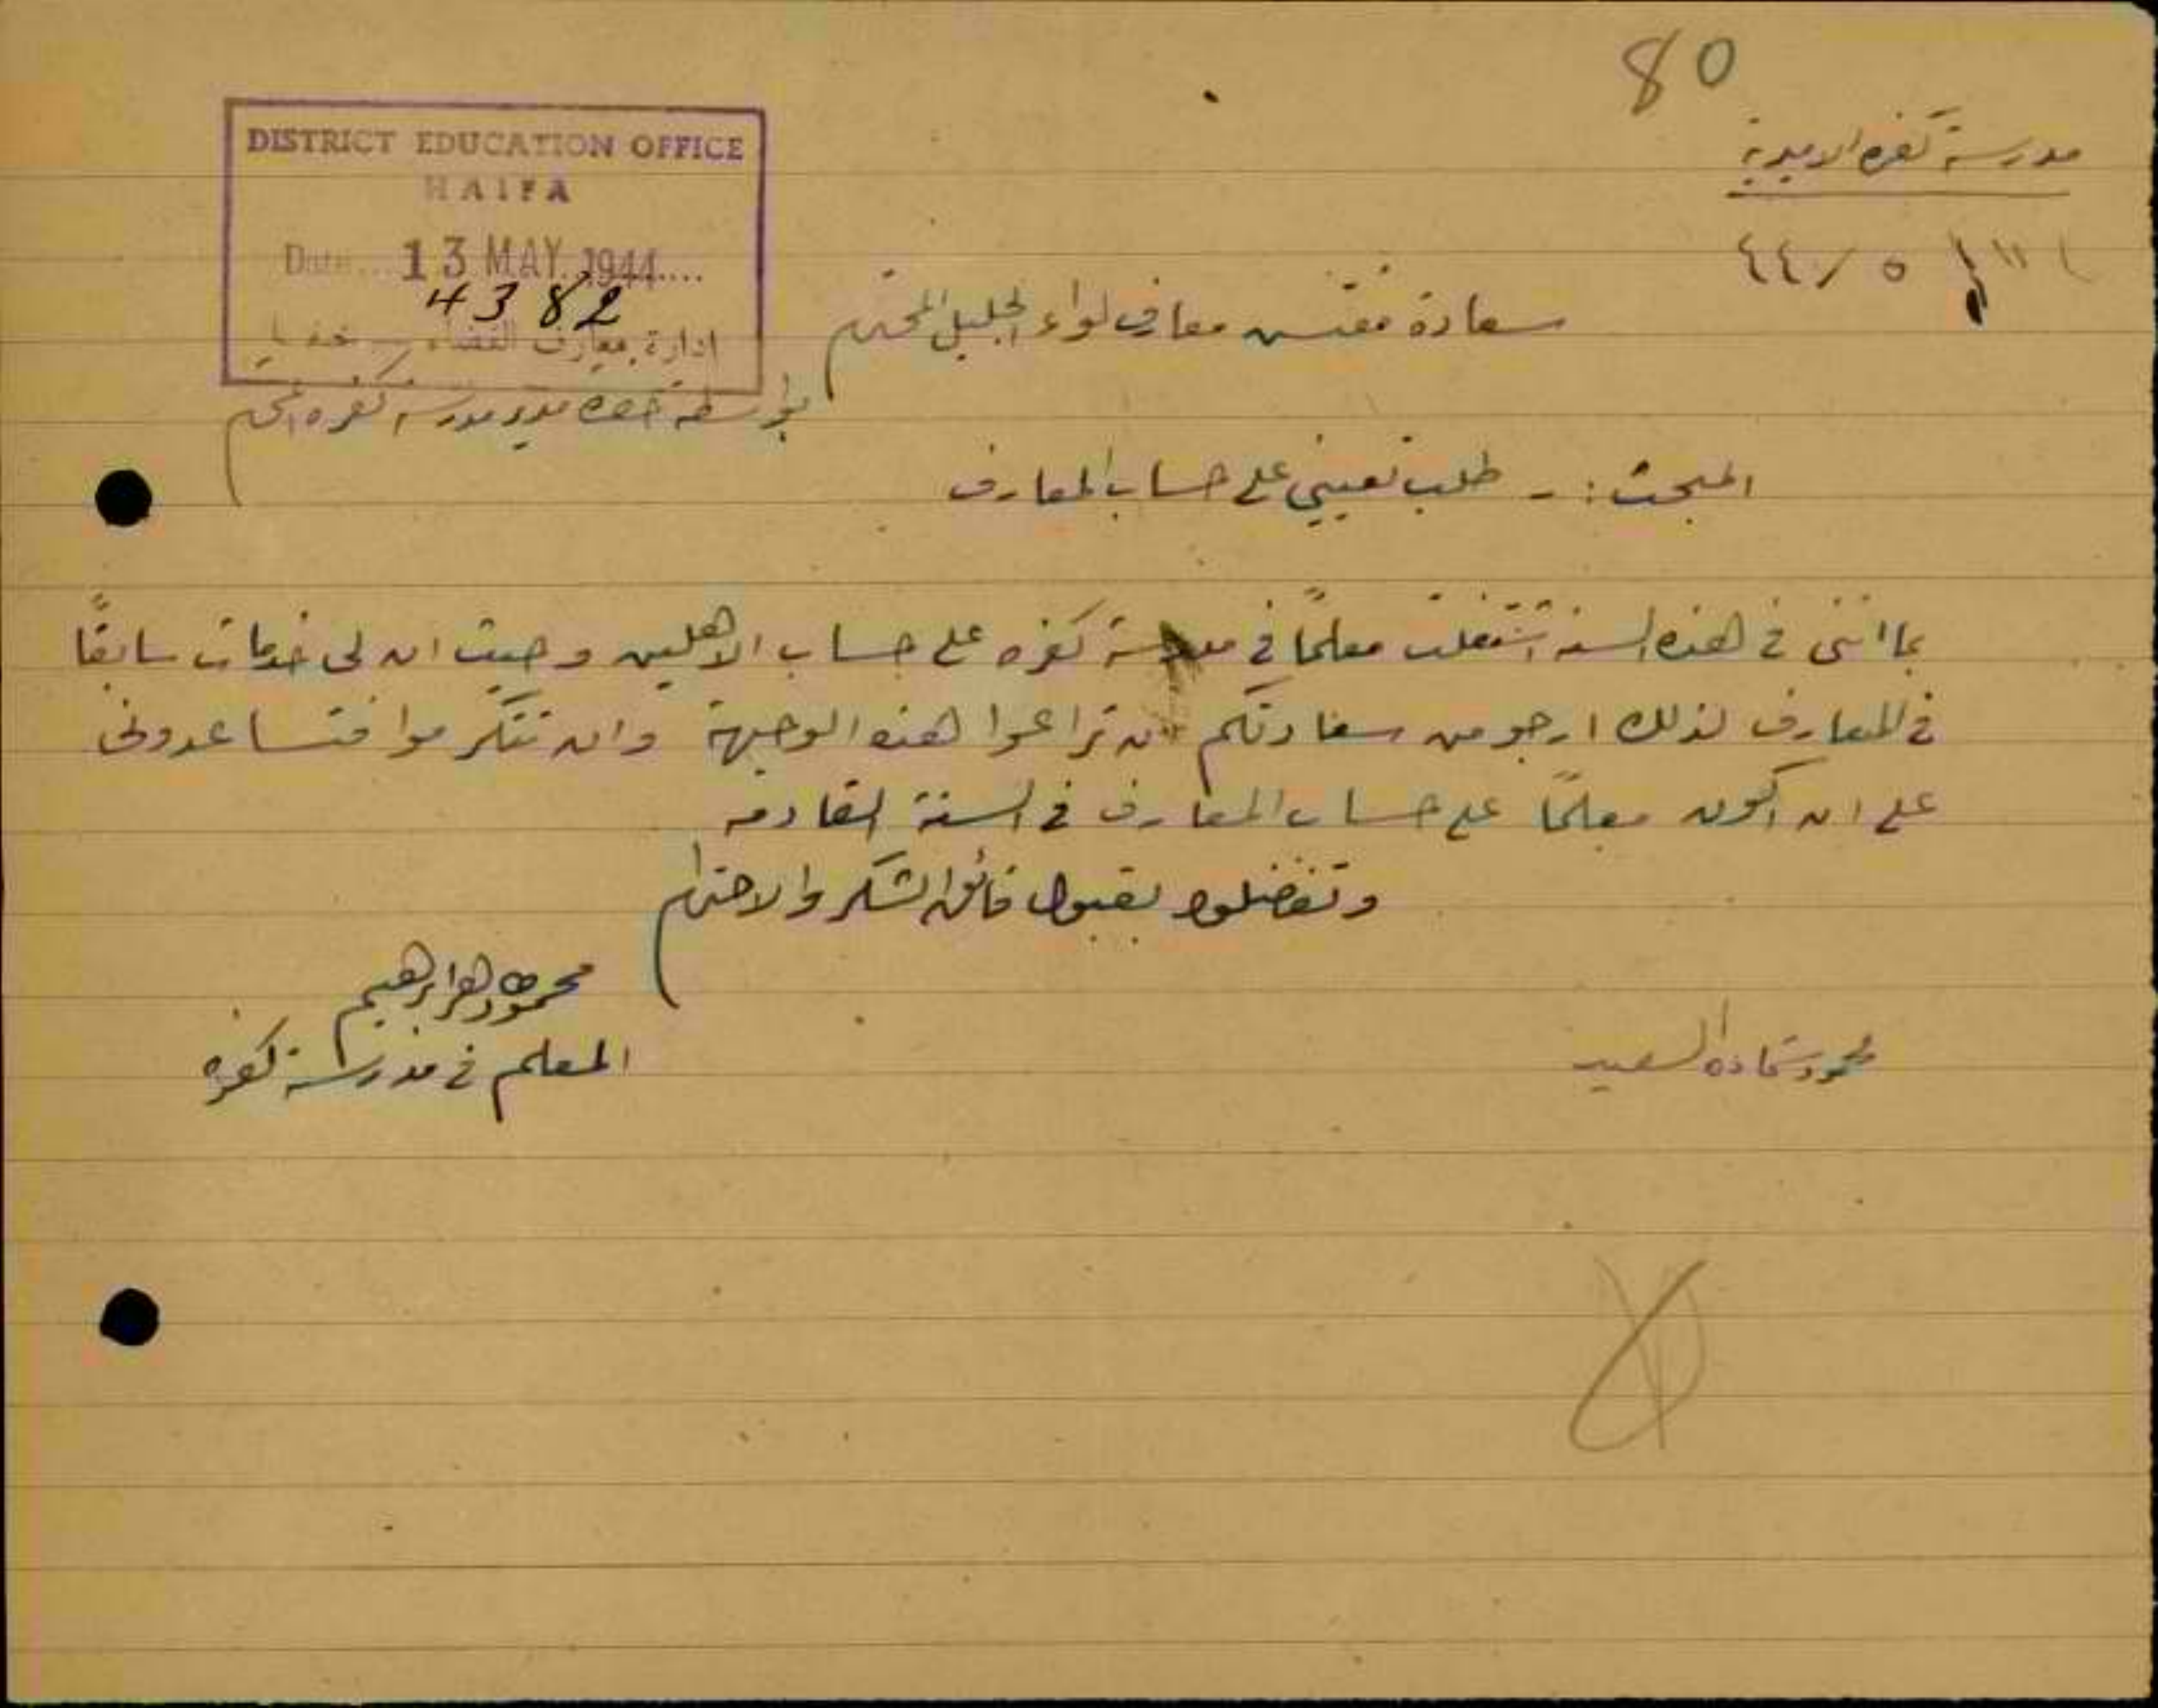 80
مدرسة كفره الاميرية
DISTRICT EDUCATION OFFICE
HAIFA
Date... 13 MAY. 1944....
4382
ادارة معارف القضاء - حيفا
٤٤/٥
سعادة مفتش معارف لواء الجليل المحترم
بواسطة حضرة مدير مدرسة كفره المحترم
المبحث :- طلب تعييني على حساب المعارف
بما انني في هذه السنة اشتغلت معلماً في مدرسة كفره على حساب الاهلين وحيث ان لي خدمات سابقاً
في المعارف لذلك ارجو من سعادتكم ان تراعوا هذه الوجهة وان تتكرموا فتساعدوني
على ان اكون معلماً على حساب المعارف في السنة القادمه
وتفضلوا بقبول فائق الشكر والاحترام
محمود ابراهيم
المعلم في مدرسة كفره
محمود السعيد